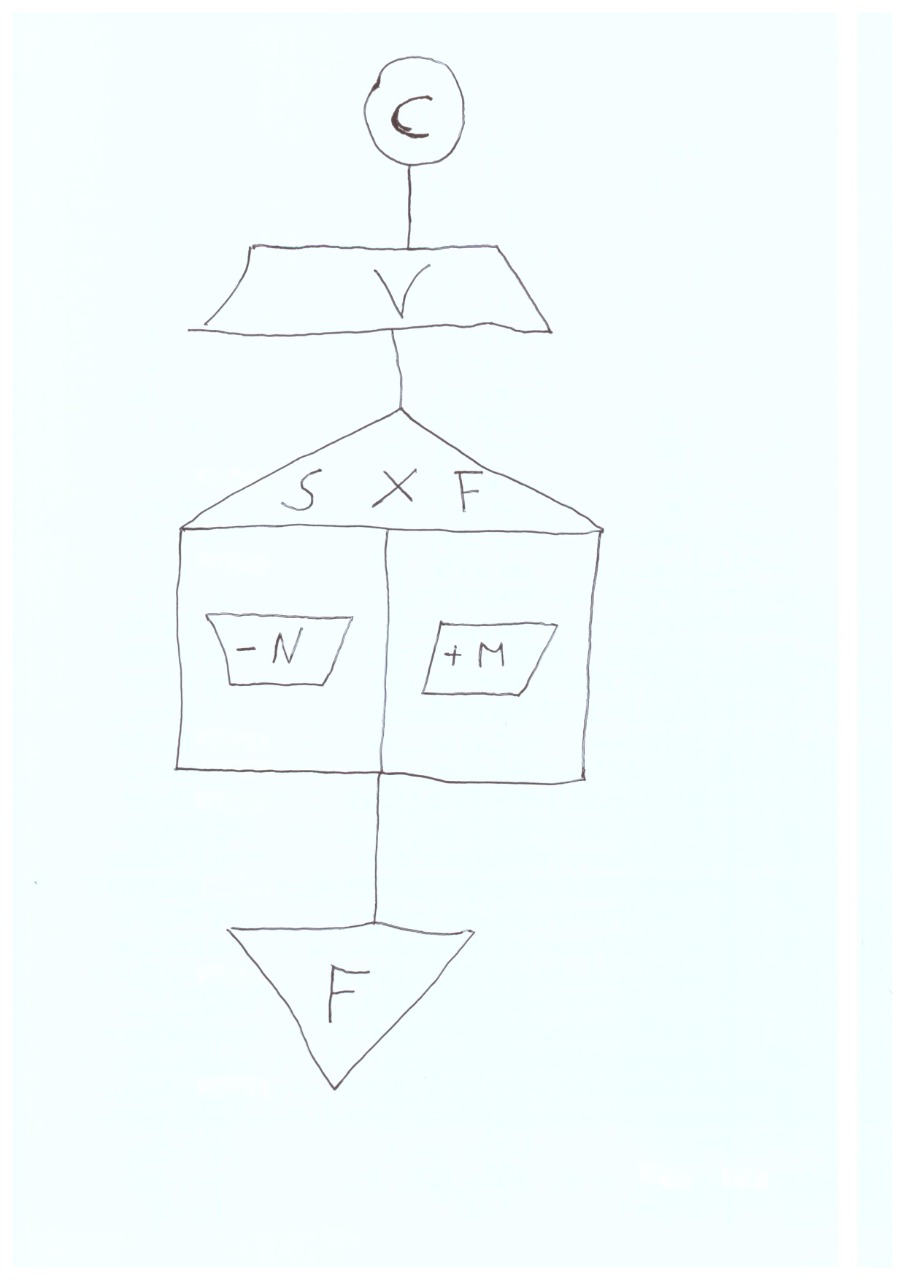 C
V
S X F
-N +M
F